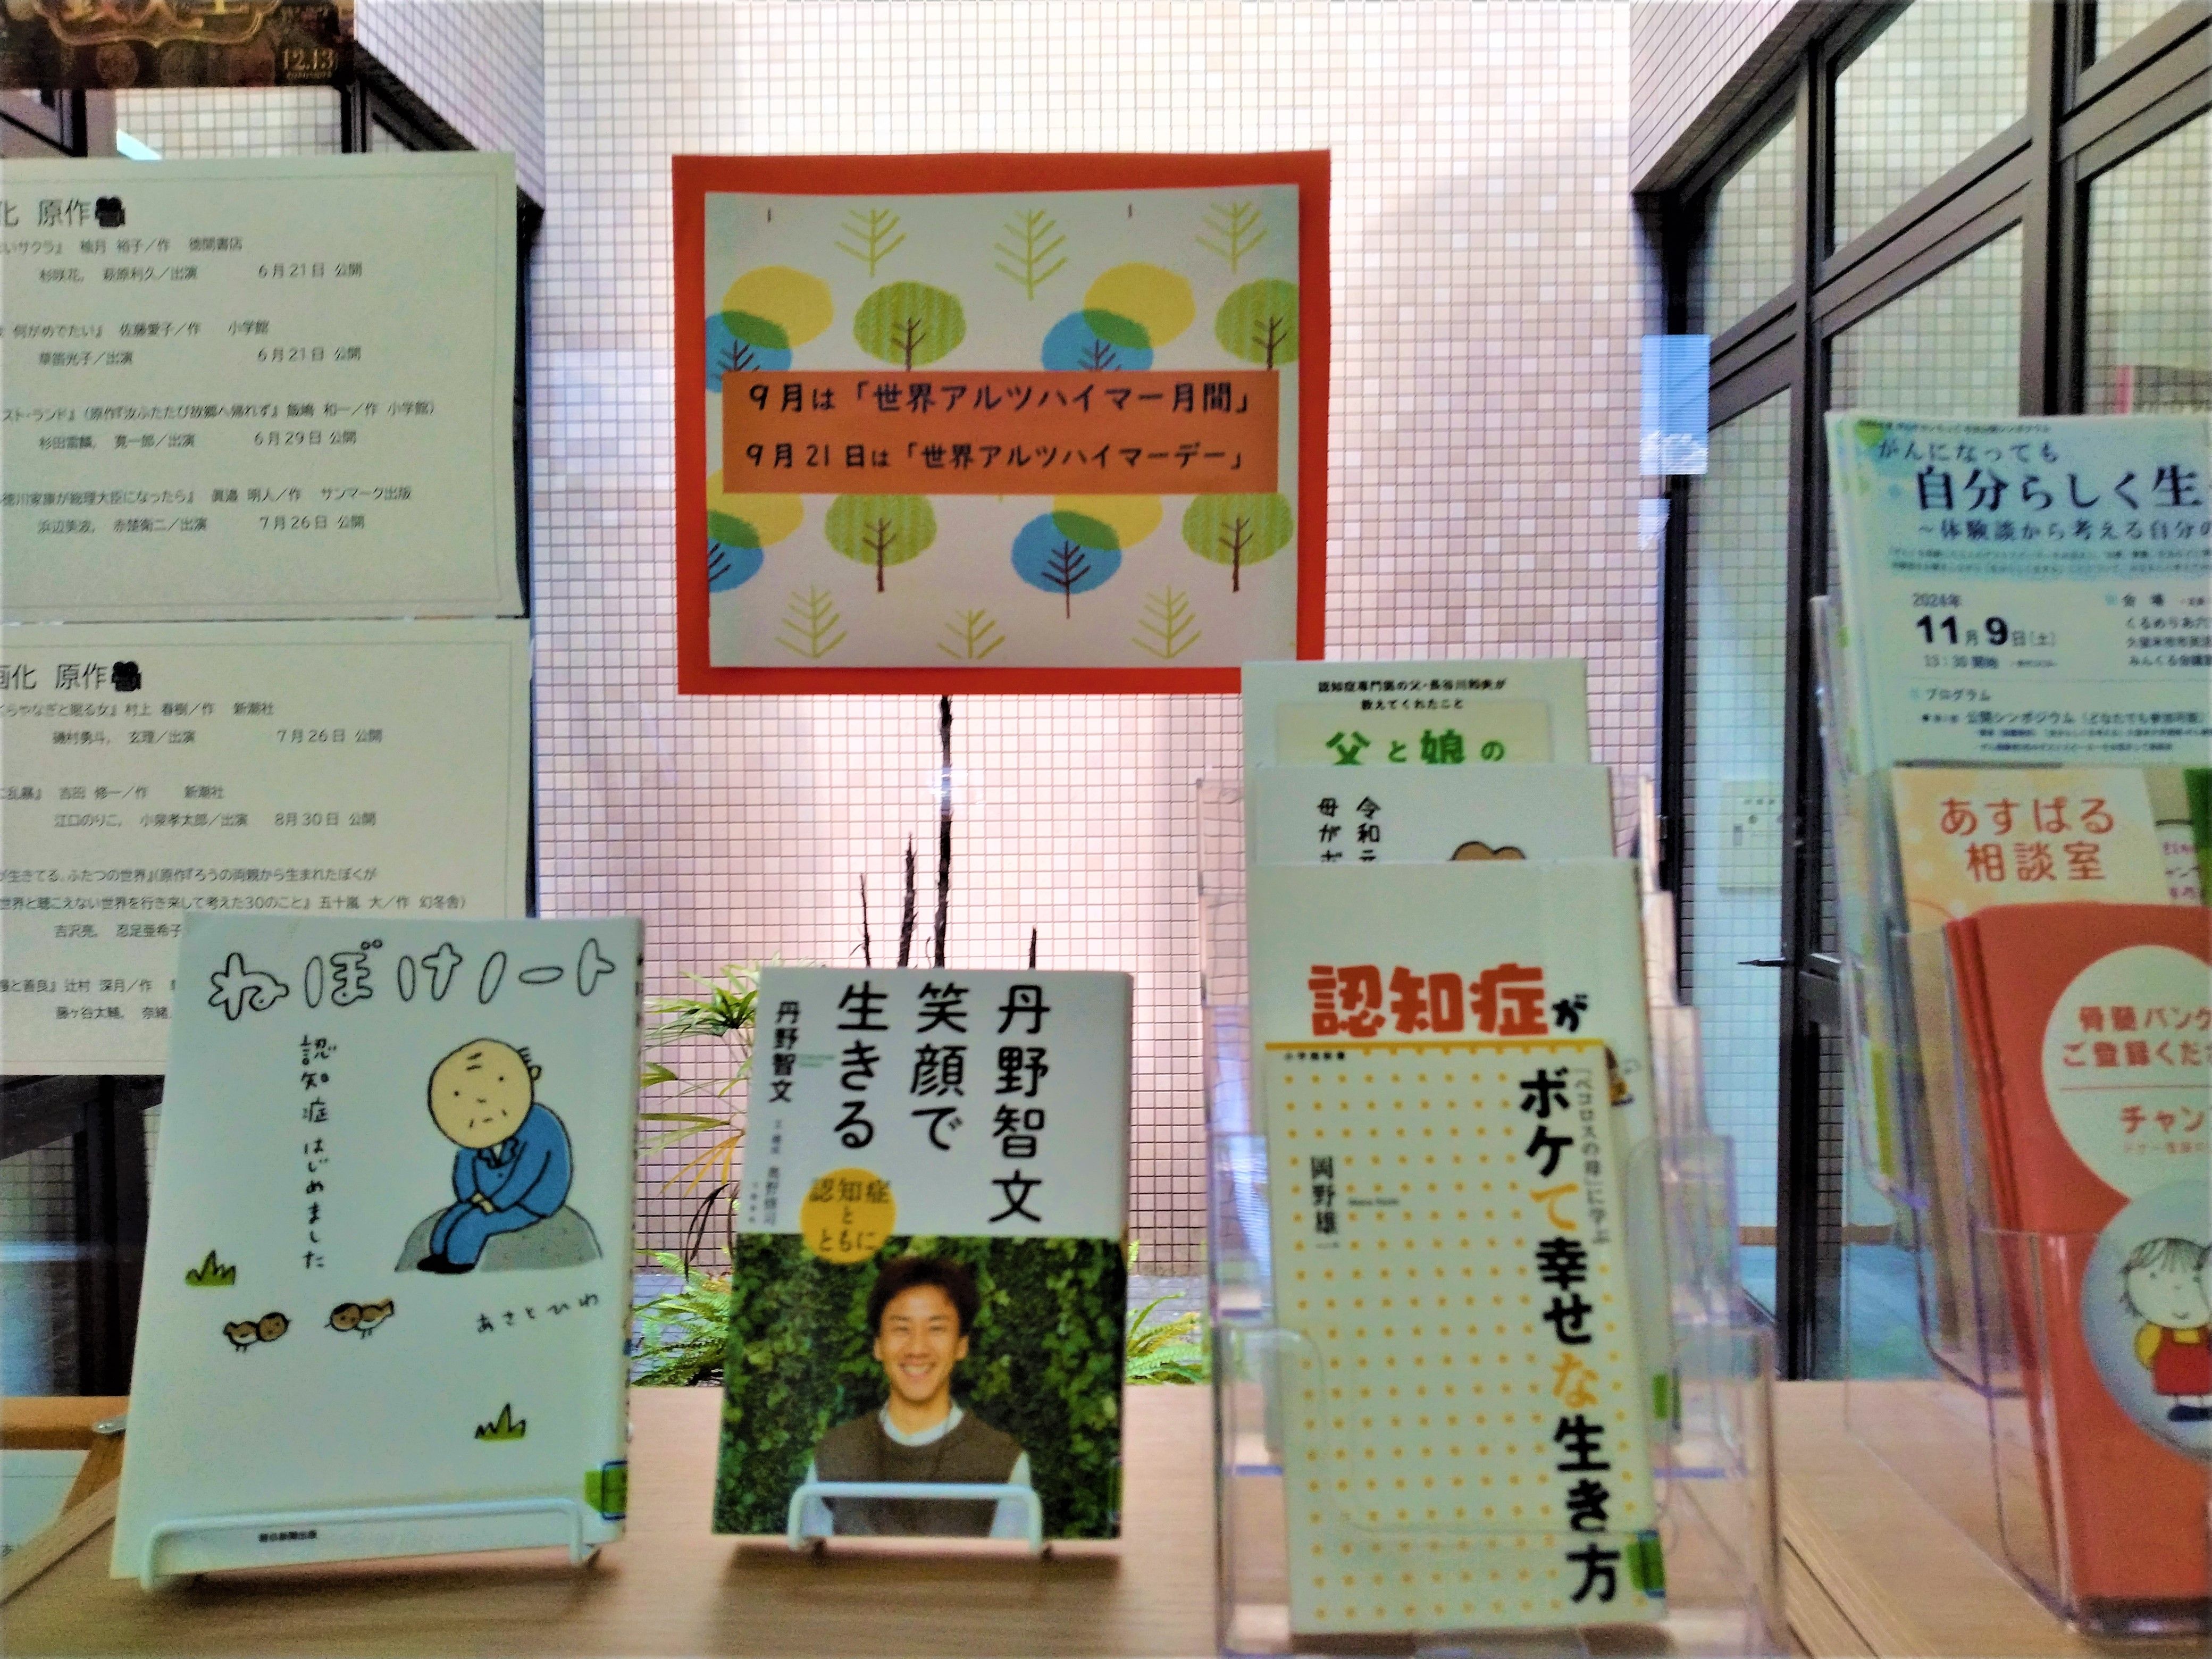 12.13
化 原作
いサクラ』 柚月 裕子／作 徳間書店
杉咲花， 萩原利久／出演 6月21日 公開
何がめでたい』 佐藤愛子／作 小学館
草笛光子／出演 6月21日 公開
スト・ランド』（原作『汝ふたたび故郷へ帰れず』 飯嶋 和一／作 小学館）
杉田雷麟， 寛一郎／出演 6月29日 公開
徳川家康が総理大臣になったら』 眞邊 明人／作 サンマーク出版
浜辺美波， 赤楚衛二／出演 7月26日 公開
画化 原作
らやなぎと眠る女』 村上 春樹／作 新潮社
磯村勇斗， 玄理／出演 7月26日 公開
に乱暴』 吉田 修一／作 新潮社
江口のりこ， 小泉孝太郎／出演 8月30日 公開
が生きてる、ふたつの世界』（原作『ろうの両親から生まれたぼくが
世界と聴こえない世界を行き来して考えた30のこと』 五十嵐 大／作 幻冬舎）
吉沢亮， 忍足亜希子
と善良』 辻村 深月／作
藤ヶ谷太輔， 奈緒
9月は「世界アルツハイマー月間」
9月21日は「世界アルツハイマーデー」
ねぼけノート
認知症はじめました
あさとひわ
朝日新聞出版
丹野智文
笑顔で
生きる
丹野智文
認知症
と
ともに
認知症専門医の父・長谷川和夫が
教えてくれたこと
父と娘の
令和元
母がボ
認知症が
小学館新書
「ペコロスの母」に学ぶ
ボケて幸せな生き方
岡野雄一
がんになっても
自分らしく生
～体験談から考える自分の
2024年
11月9日（土）
13：30 開始
会 場
くるめりあ六
久留米市市民活
みんくる会議室
プログラム
公開シンポジウム（どなたでも参加可能）
あすばる
相談室
骨髄バンク
ご登録くだ
チャン